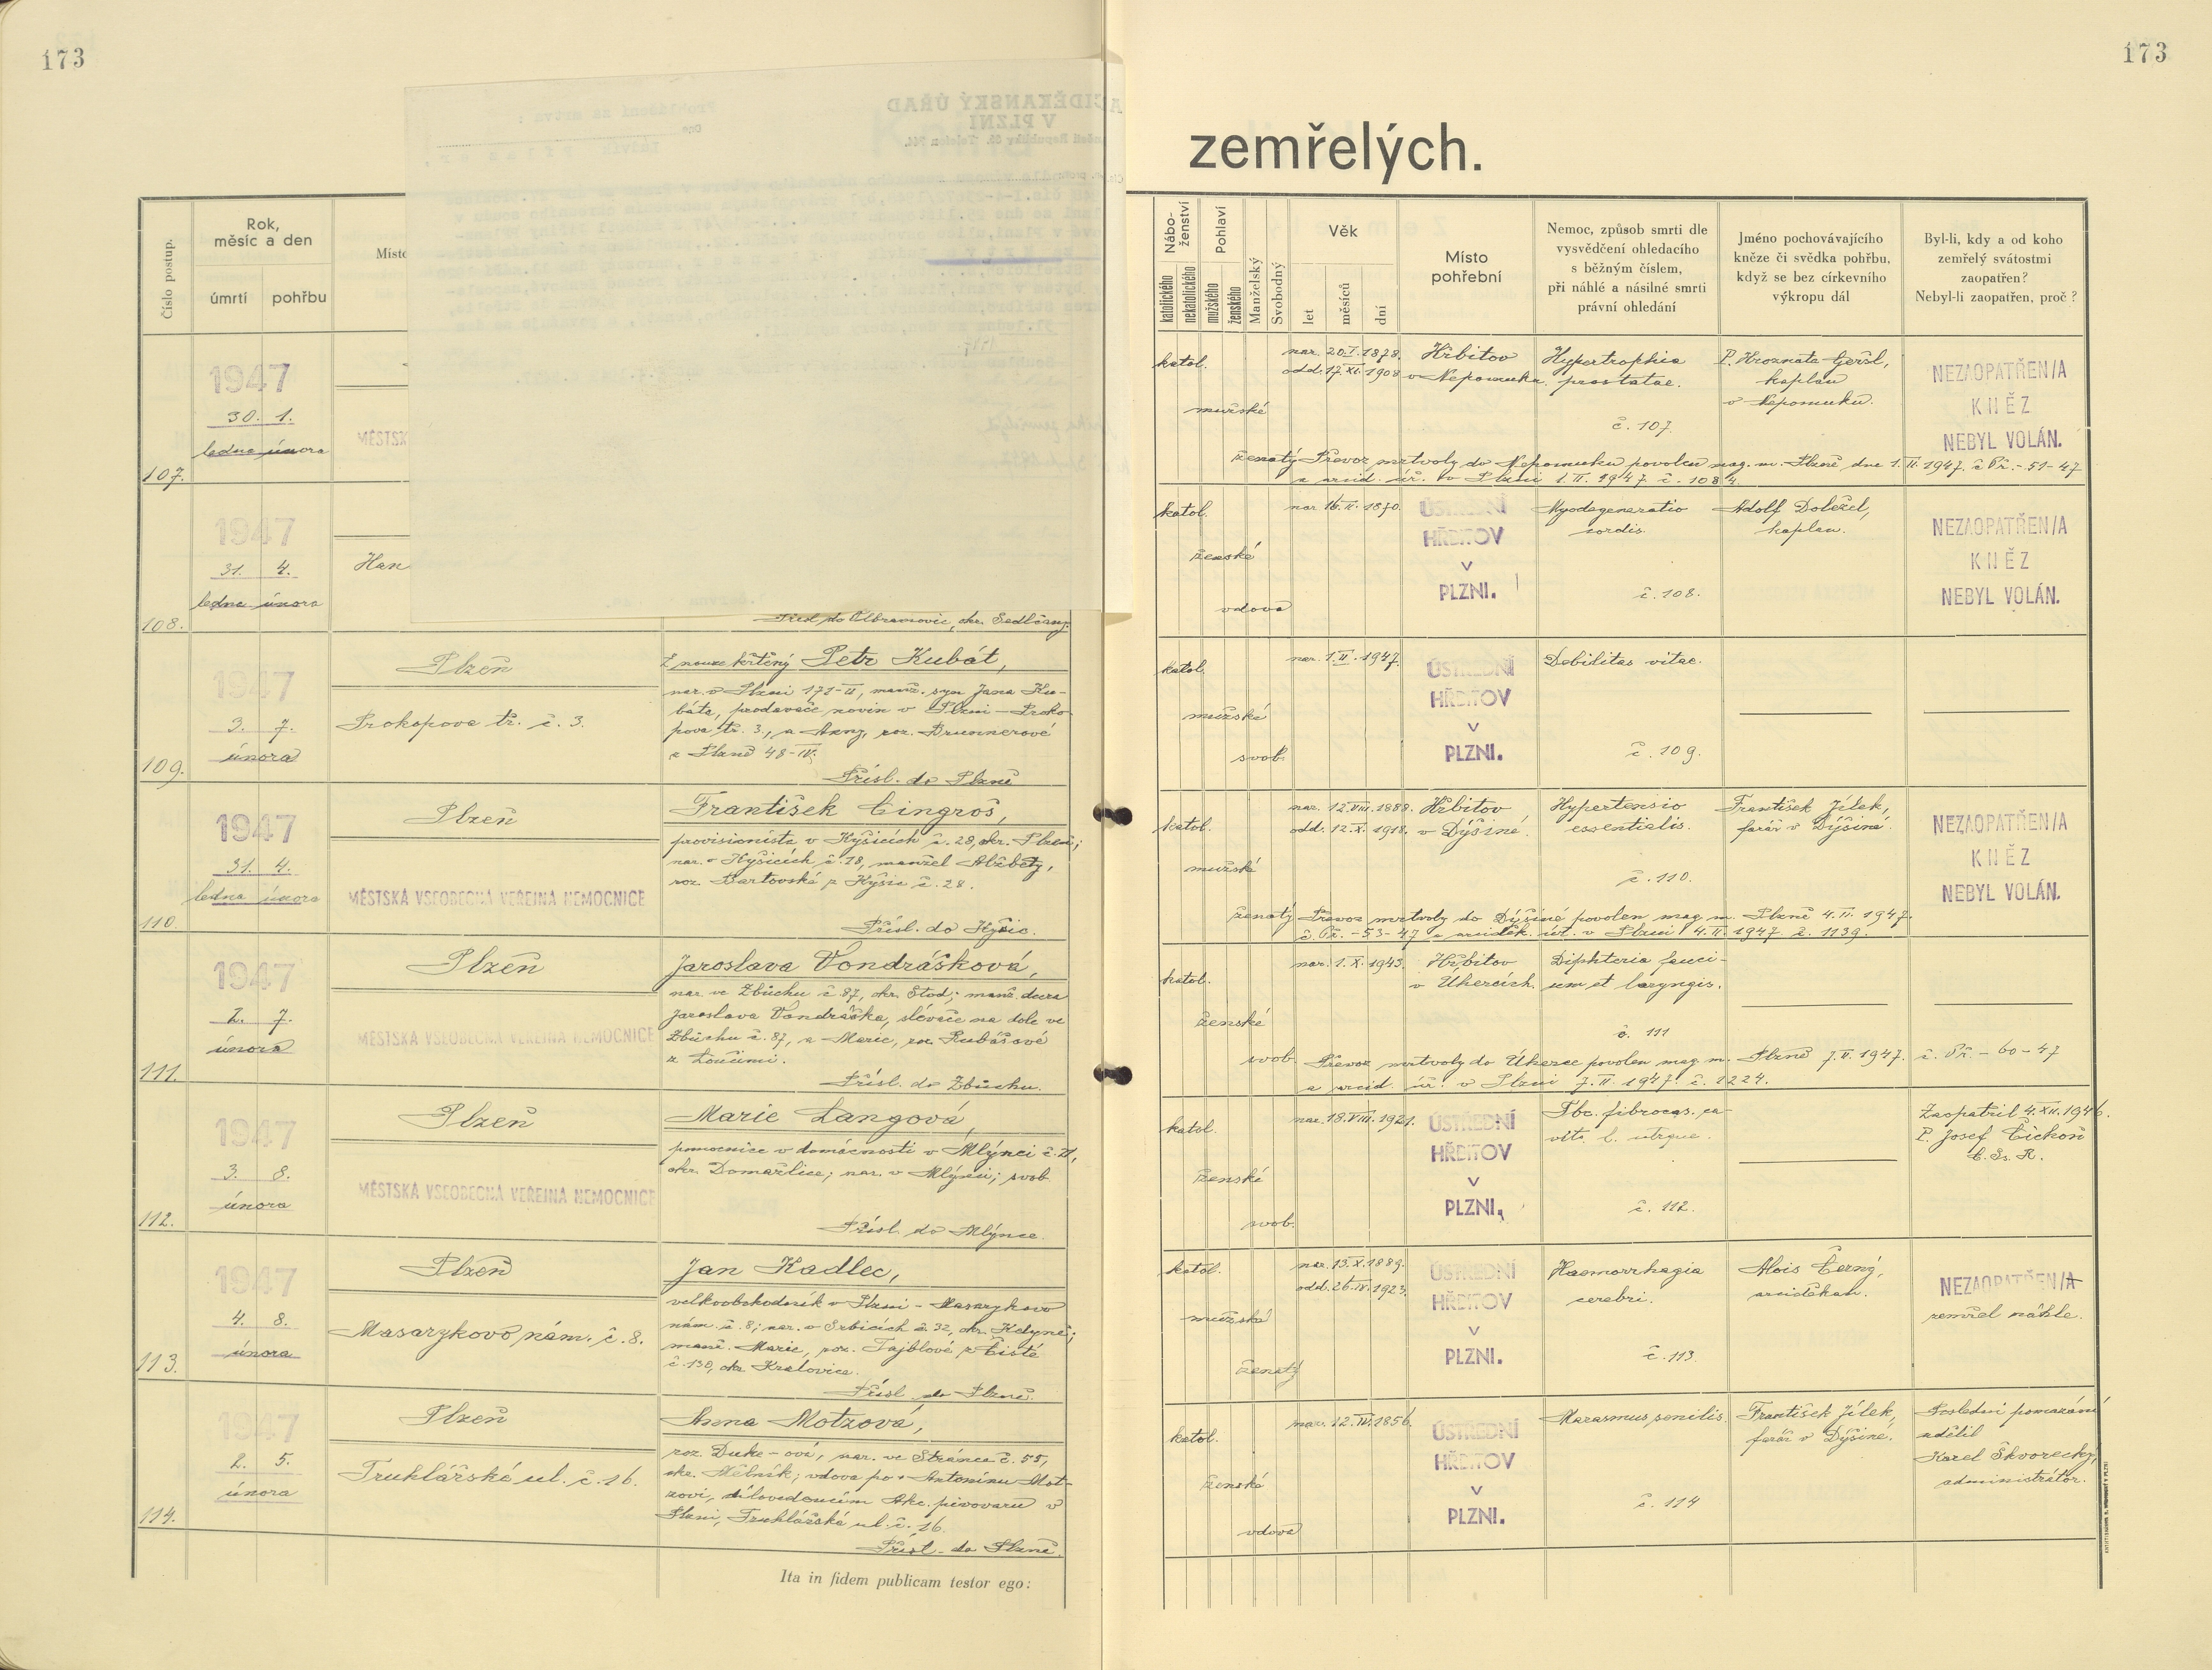 173
173
zemřelých.
Číslo postup.
Rok,
měsíc a den
úmrtí
pohřbu
Místo
Nábo-
ženství
katolického
nekatolického
Pohlaví
mužského
ženského
Manželský
Svobodný
Věk
let
měsíců
dní
Místo
pohřební
Nemoc, způsob smrti dle
vysvědčení ohledacího
s běžným číslem,
při náhlé a násilné smrti
právní ohledání
Jméno pochovávajícího
kněze či svědka pohřbu,
když se bez církevního
výkropu dál
Byl-li, kdy a od koho
zemřelý svátostmi
zaopatřen?
Nebyl-li zaopatřen, proč ?
107.
1947
30. 1.
ledna února
MĚSTSK
katol.
mužské
ženatý
nar. 20.I.1878.
odd. 17.XI.1908
Hřbitov
v Nepomuku.
Hypertrophia
prostatae.
č. 107.
P. Hroznata Geršl,
kaplan
v Nepomuku.
NEZAOPATŘEN/A
KNĚZ
NEBYL VOLÁN.
Převoz mrtvoly do Nepomuku povolen mag. m. Plzně dne 1.II.1947. č Př.-51-47
a arcid. úř. v Plzni 1.II.1947 č. 1084.
108.
1947
31. 4.
ledna února
Han
Přísl. do Olbramovic, okr. Sedlčany.
katol.
ženské
vdova
nar. 16.II.1870.
ÚSTŘEDNÍ
HŘBITOV
V
PLZNI.
Myodegeneratio
cordis.
č. 108.
Adolf Doležel,
kaplan.
NEZAOPATŘEN/A
KNĚZ
NEBYL VOLÁN.
109.
1947
3. 7.
února
Plzeň
Prokopova tř. č. 3.
Z nouze křtěný Petr Kubát,
nar. v Plzni 171-II, manž. syn Jana Ku-
báta, prodavače novin v Plzni - Proko-
pova tř. 3., a Anny, roz. Brunnerové
z Plzně 48-IV.
Přísl. do Plzně
katol.
mužské
svob.
nar. 1.II.1947.
ÚSTŘEDNÍ
HŘBITOV
V
PLZNI.
Debilitas vitae.
č. 109.
110.
1947
31. 4.
ledna února
Plzeň
MĚSTSKÁ VŠEOBECNÁ VEŘEJNÁ NEMOCNICE
František Cingroš,
provisionista v Kyšicích č. 28, okr. Plzeň;
nar. v Kyšicích č. 18, manžel Alžběty,
roz. Bartovské z Kyšic č. 28.
Přísl. do Kyšic.
katol.
mužské
ženatý
nar. 12.VIII.1888.
odd. 12.X.1918.
Hřbitov
v Dýšině.
Hypertensio
essentialis.
č. 110.
František Jílek,
farář v Dýšině.
NEZAOPATŘEN/A
KNĚZ
NEBYL VOLÁN.
Převoz mrtvoly do Dýšině povolen mag. m. Plzně 4.II.1947.
č. Př.-53-47 a arciděk. úř. v Plzni 4.II.1947 č. 1139.
111.
1947
2. 7.
února
Plzeň
MĚSTSKÁ VŠEOBECNÁ VEŘEJNÁ NEMOCNICE
Jaroslava Vondrášková,
nar. ve Zbůchu č. 87, okr. Stod; manž. dcera
Jaroslava Vondráška, slévače na dole ve
Zbůchu č. 87, a Marie, roz. Rubášové
z Loučimi.
Přísl. do Zbůchu.
katol.
ženské
svob.
nar. 1.X.1943.
Hřbitov
v Úhercích.
Diphteria fauci-
um et laryngis.
č. 111
Převoz mrtvoly do Úherec povolen mag. m. Plzně 7.II.1947. č. Př.-60-47
a arcid. úř. v Plzni 7.II.1947. č. 1224.
112.
1947
3. 8.
února
Plzeň
MĚSTSKÁ VŠEOBECNÁ VEŘEJNÁ NEMOCNICE
Marie Langová,
pomocnice v domácnosti v Mlýnci č. 21,
okr. Domažlice; nar. v Mlýnci; svob.
Přísl. do Mlýnce.
katol.
ženské
svob.
nar. 18.VIII.1921.
ÚSTŘEDNÍ
HŘBITOV
V
PLZNI.
Tbc. fibrocas. ca-
vit. l. utrque.
č. 112.
Zaopatřil 4.XII.1946.
P. Josef Čickoň
C. Ss. R.
113.
1947
4. 8.
února
Plzeň
Masarykovo nám. č. 8.
Jan Kadlec,
velkoobchodník v Plzni - Masarykovo
nám. č. 8; nar. v Srbicích č. 32, okr. Kdyně;
manž. Marie, roz. Tajblové z Čisté
č. 130, okr. Kralovice.
Přísl. do Plzně.
katol.
mužské
ženatý
nar. 13.X.1889.
odd. 26.IV.1923.
ÚSTŘEDNÍ
HŘBITOV
V
PLZNI.
Haemorrhagia
cerebri.
č. 113.
Alois Černý,
arciděkan.
NEZAOPATŘEN/A
zemřel náhle.
114.
1947
2. 5.
února
Plzeň
Truhlářská ul. č. 16.
Anna Motzová,
roz. Duke-ová, nar. ve Stránce č. 55,
okr. Mělník; vdova po + Antonínu Mot-
zovi, dílovedoucím Akc. pivovaru v
Plzni, Truhlářská ul. č. 16.
Přísl. do Plzně.
katol.
ženské
vdova
nar. 12.IV.1856.
ÚSTŘEDNÍ
HŘBITOV
V
PLZNI.
Marasmus senilis.
č. 114
František Jílek,
farář v Dýšině.
Poslední pomazání
udělil
Karel Škvorecký,
administrátor.
Ita in fidem publicam testor ego: